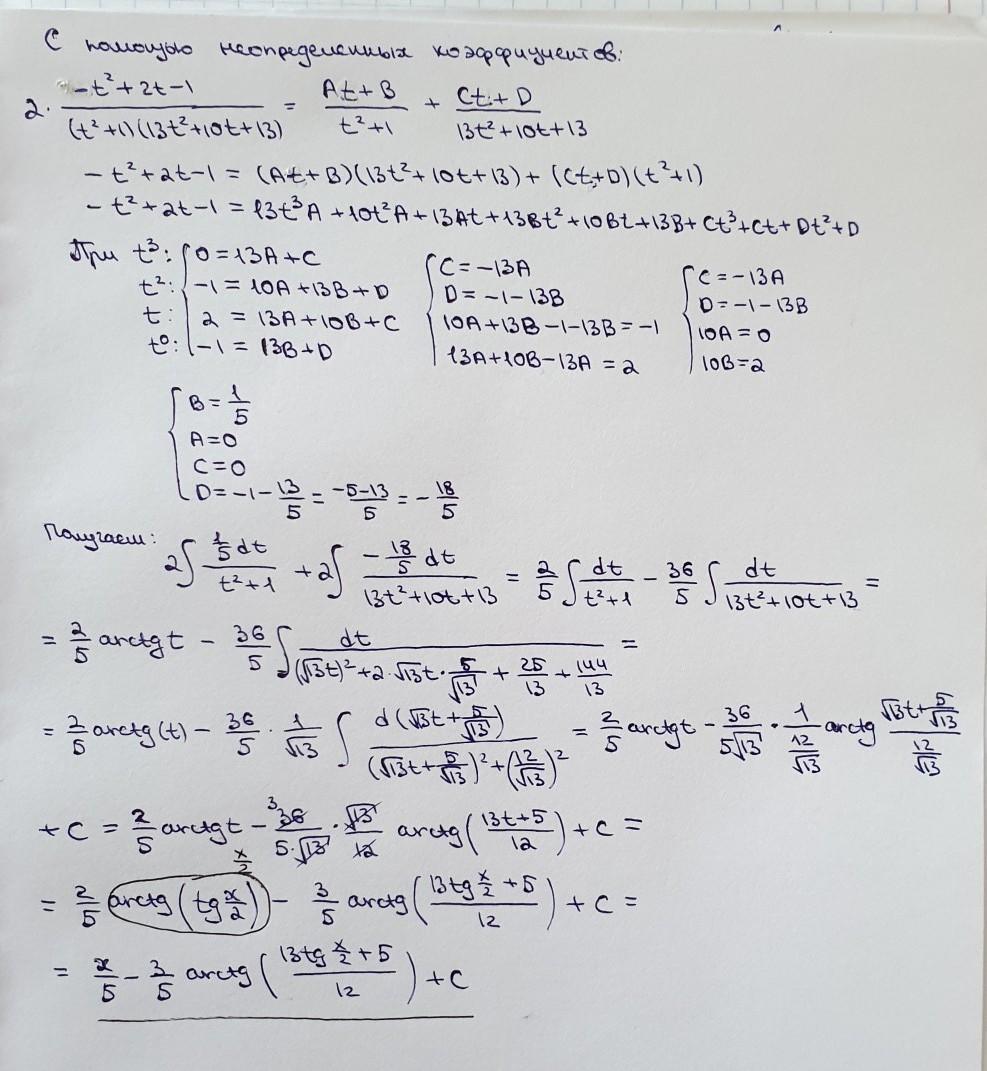 С помощью неопределенных коэффициентов:
2. (-t²+2t-1)/((t²+1)(13t²+10t+13)) = (At+B)/(t²+1) + (Ct+D)/(13t²+10t+13)
-t²+2t-1 = (At+B)(13t²+10t+13) + (Ct+D)(t²+1)
-t²+2t-1 = 13t³A+10t²A+13At+13Bt²+10Bt+13B+Ct³+Ct+Dt²+D
При t³: { 0=13A+C { C=-13A { C=-13A
t²: -1=10A+13B+D D=-1-13B D=-1-13B
t: 2=13A+10B+C 10A+13B-1-13B=-1 10A=0
t⁰: -1=13B+D 13A+10B-13A=2 10B=2
{ B=1/5
A=0
C=0
D=-1-13/5=(-5-13)/5=-18/5
Получаем:
2∫(1/5 dt)/(t²+1) +2∫(-18/5 dt)/(13t²+10t+13) = 2/5 ∫dt/(t²+1) - 36/5 ∫dt/(13t²+10t+13) =
= 2/5 arctg t - 36/5 ∫dt/((√13t)²+2·√13t·5/√13+25/13+144/13) =
= 2/5 arctg(t) - 36/5 · 1/√13 ∫d(√13t+5/√13)/((√13t+5/√13)²+(12/√13)²) = 2/5 arctg t - 36/(5√13) · 1/(12/√13) arctg (√13t+5/√13)/(12/√13)
+C = 2/5 arctg t - 36/(5·√13) · √13/12 arctg((13t+5)/12)+C =
3
x/2
= 2/5 arctg(tg x/2) - 3/5 arctg((13tg x/2 +5)/12)+C =
= x/5 - 3/5 arctg((13tg x/2 +5)/12)+C